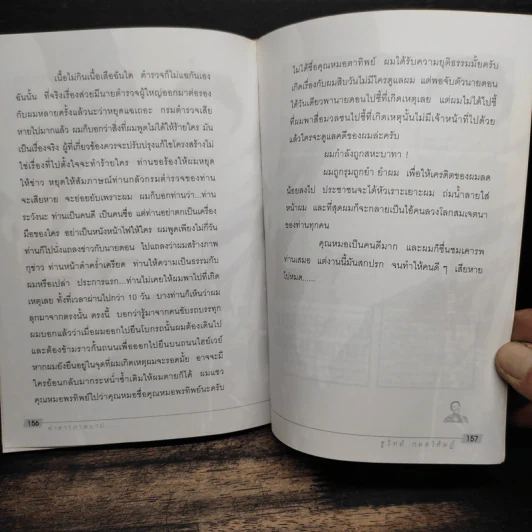 เนื้อไม่กินเนื้อเสือฉันใด ตำรวจก็ไม่แฉกันเอง
ฉันนั้น ที่จริงเรื่องส่วยมีนายตำรวจผู้ใหญ่ออกมาต่อรอง
กับผมหลายครั้งแล้วนะว่าหยุดแฉเถอะ กรมตำรวจเสีย
หายไปมากแล้ว ผมก็บอกว่าสิ่งที่ผมพูดไม่ได้ให้ร้ายใคร มัน
เป็นเรื่องจริง ผู้ที่เกี่ยวข้องควรจะปรับปรุงแก้ไขโครงสร้างไม่
ใช่เรื่องที่ไปตั้งใจจะทำร้ายใคร ท่านขอร้องให้ผมหยุด
ให้ข่าว หยุดให้สัมภาษณ์ท่านกลัวกรมตำรวจของท่าน
จะเสียหาย จะย่อยยับเพราะผม ผมก็บอกท่านว่า...ท่าน
ระวังนะ ท่านเป็นคนดี เป็นคนซื่อ แต่ท่านอย่าตกเป็นเครื่อง
มือของใคร อย่าเป็นหนังหน้าไฟให้ใคร ผมพูดเพียงไม่กี่วัน
ท่านก็ไปนั่งแถลงข่าวกับนายดอน ไปแถลงว่าผมสร้างภาพ
กุข่าว ท่านหน้าดำคร่ำเครียด ท่านให้ความเป็นธรรมกับ
ผมหรือเปล่า ประการแรก...ท่านไม่เคยให้ผมพาไปที่เกิด
เหตุเลย ทั้งที่เวลาผ่านไปกว่า 10 วัน บางท่านก็เห็นว่าผม
ลุกมาจากตรงนั้น ตรงนี้ บอกว่ารู้มาจากคนขับรถบรรทุก
ผมบอกแล้วว่าเมื่อผมออกไปยืนโบกรถนั้นผมต้องเดินไป
และต้องข้ามราวกั้นถนนเพื่อออกไปยืนบนถนนไฮย์เวย์
หากผมยังยืนอยู่ในจุดที่ผมเกิดเหตุผมจะรอดมั้ย อาจจะมี
ใครย้อนกลับมากระหน่ำซ้ำเติมให้ผมตายก็ได้ ผมแขว
คุณหมอพรทิพย์ไปว่าคุณหมอชื่อคุณหมอพรทิพย์นะครับ
156
ไม่ได้ชื่อคุณหมอตาทิพย์ ผมได้รับความยุติธรรมมั้ยครับ
เกิดเรื่องกับผมสิบวันไม่มีใครดูแลผม แต่พอจับตัวนายดอน
ได้วันเดียวพานายดอนไปชี้ที่เกิดเหตุเลย แต่ผมไม่ได้ไปชี้
ที่ผมพาสื่อมวลชนไปชี้ที่เกิดเหตุนั้นไม่มีเจ้าหน้าที่ไปด้วย
แล้วใครจะดูแลคดีของผมล่ะครับ
ผมกำลังถูกสหะบาทา !
ผมถูกรุมถูกยำ ยำผม เพื่อให้เครดิตของผมลด
น้อยลงไป ประชาชนจะได้หัวเราะเยาะผม ถ่มน้ำลายใส่
หน้าผม และที่สุดผมก็จะกลายเป็นไอ้คนลวงโลกสมเจตนา
ของท่านทุกคน
คุณหมอเป็นคนดีมาก และผมก็ชื่นชมเคารพ
ท่านเสมอ แต่งานนี้มันสกปรก จนทำให้คนดี ๆ เสียหาย
ไปหมด......
157